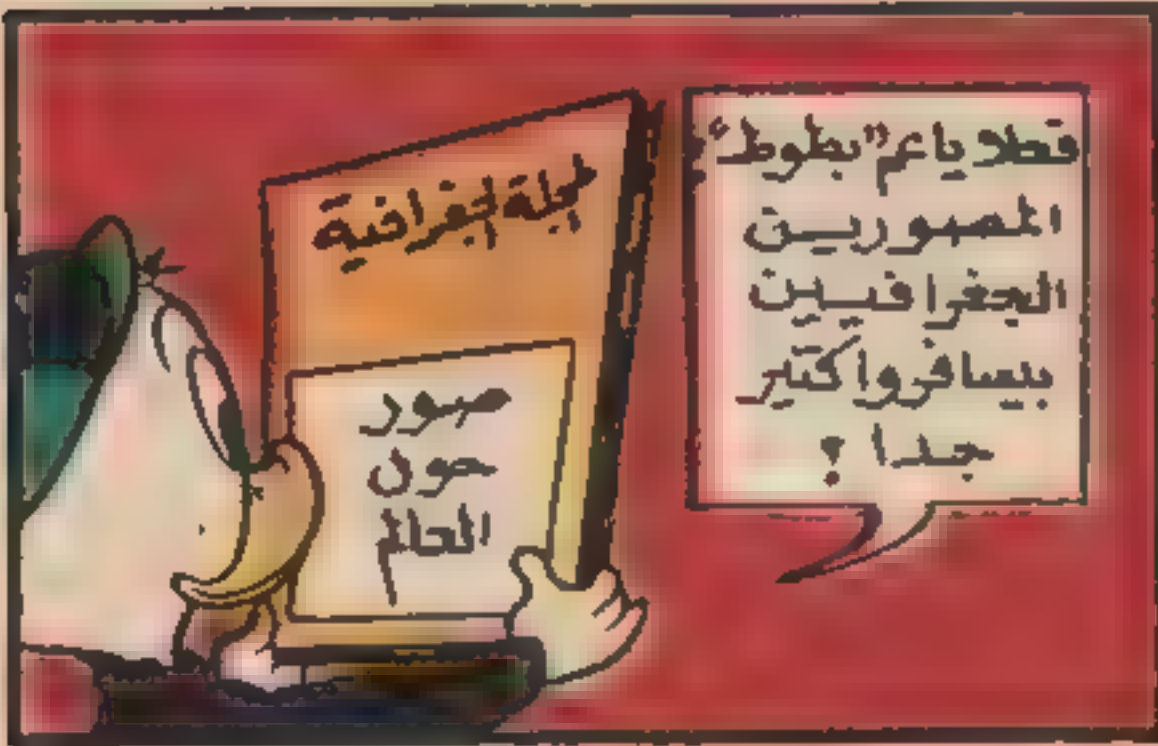 فعلا يا عم "بطوط"
المصورين
الجغرافيين
بيسافروا كتير
جدا !
المجلة الجغرافية
صور
حول
العالم